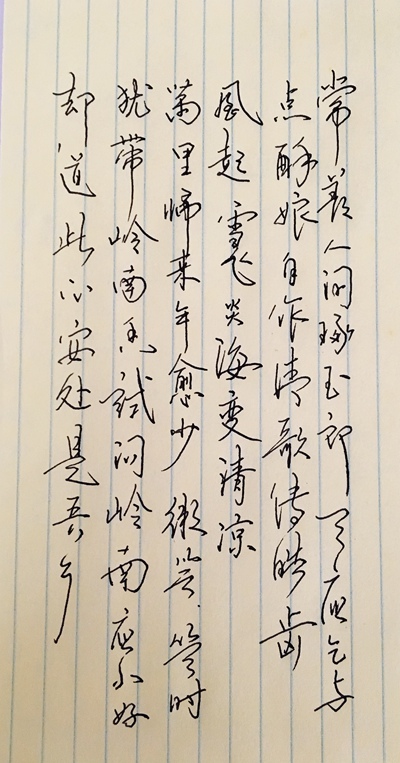 常羡人间琢玉郎天应乞与
点酥娘自作清歌传皓齿
風起雪飞炎海变清凉
萬里帰来年愈少微笑笑时
犹带岭南香试问岭南应不好
却道此心安处是吾乡